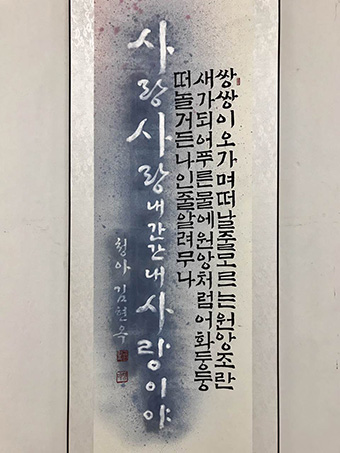 쌍쌍이오가며떠날줄모르는원앙조란
새가되어푸른물에원앙처럼어화둥둥
떠놀거든나인줄알려무나
사랑사랑내간간내사랑이야
청아 김현옥